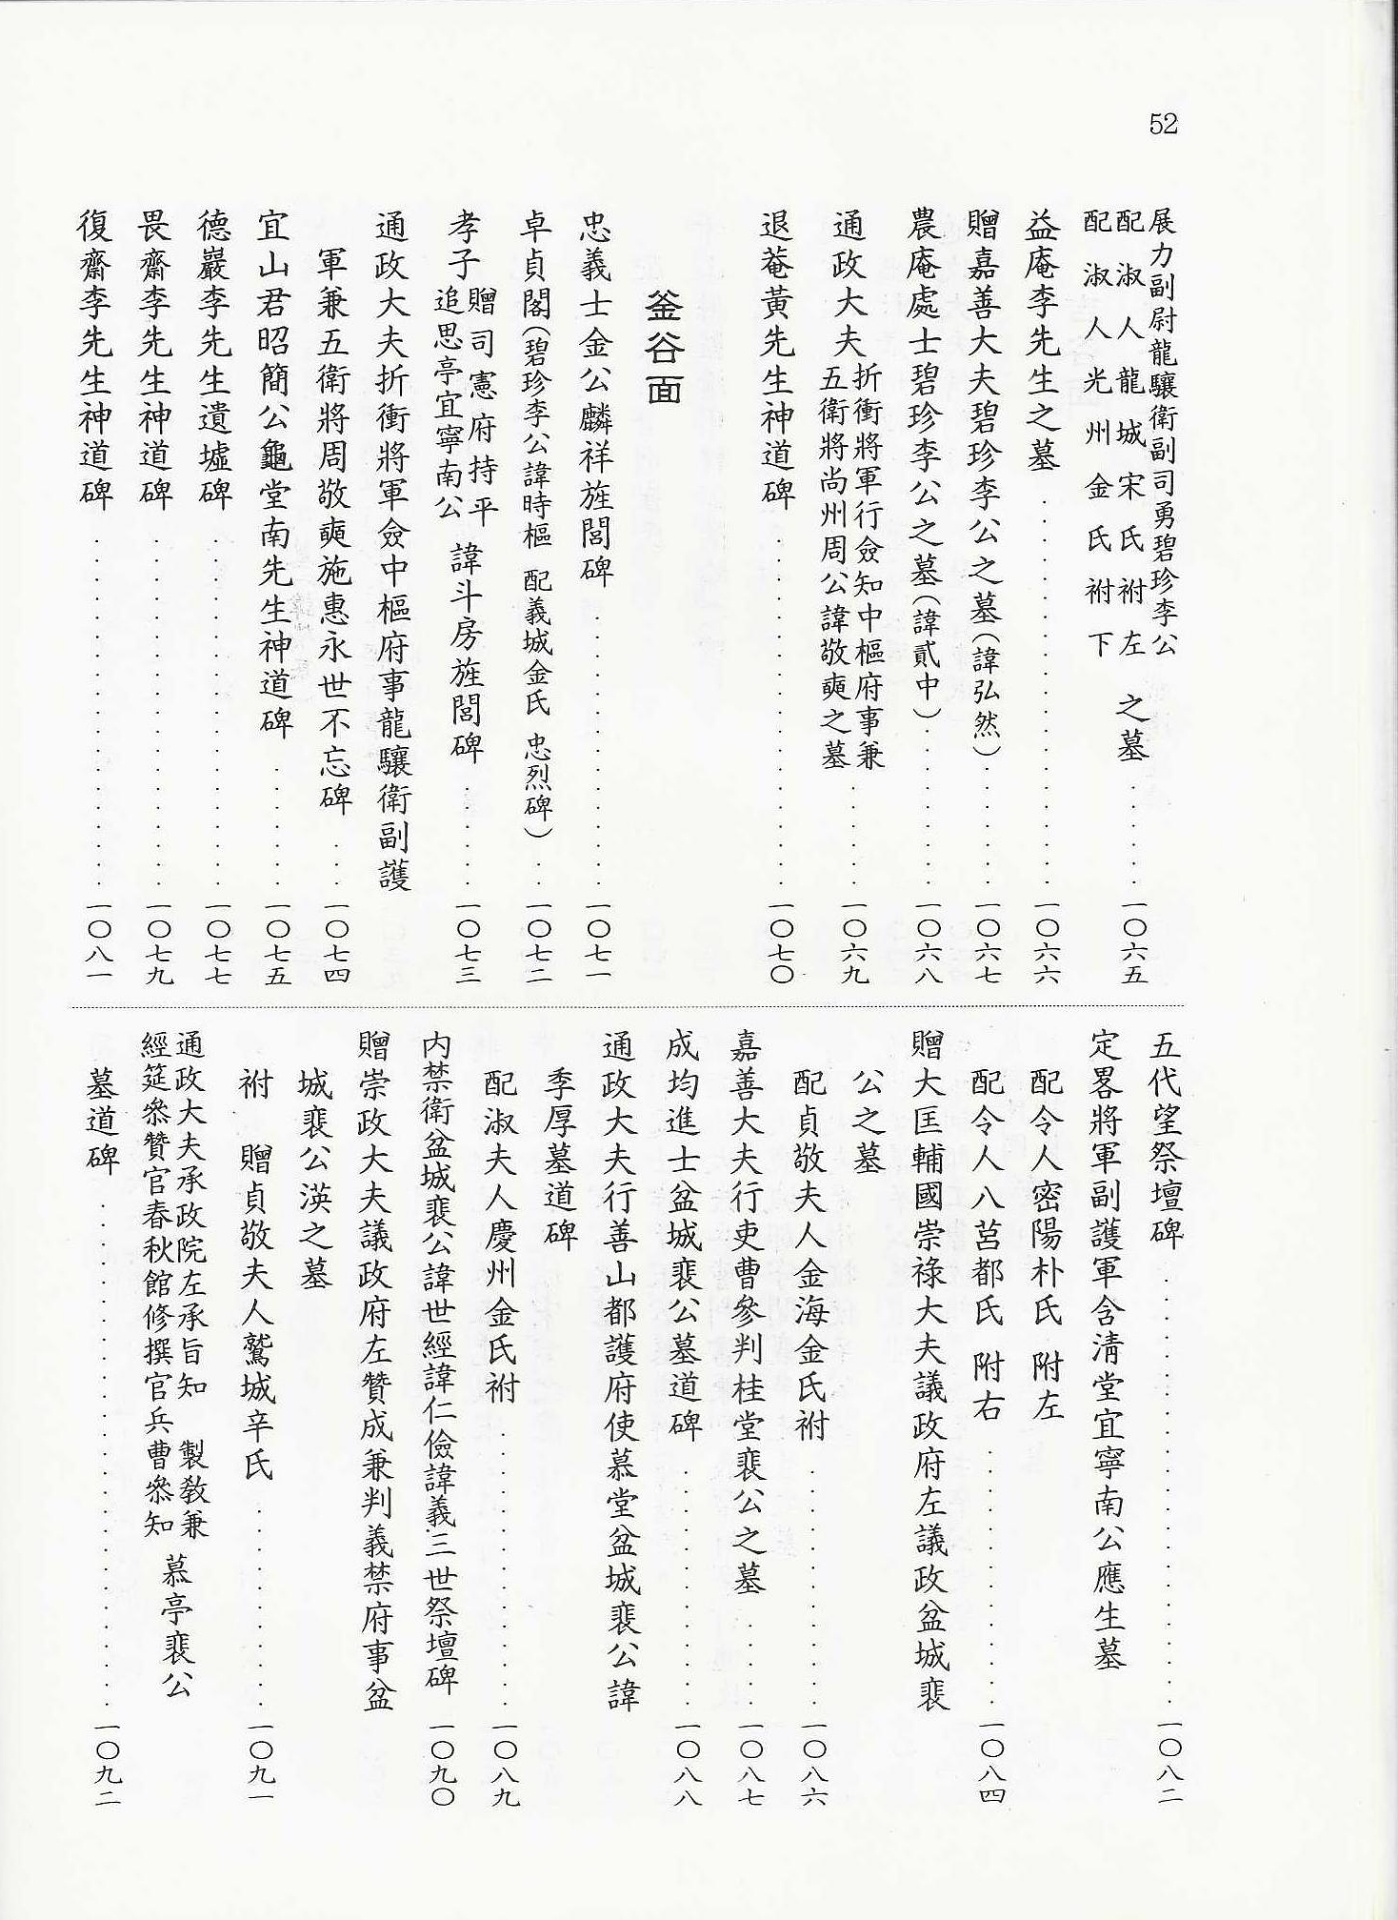 52
展力副尉龍驤衛副司勇碧珍李公
配淑人龍城宋氏祔左
配淑人光州金氏祔下
之墓……一〇六五
益庵李先生之墓……一〇六六
贈嘉善大夫碧珍李公之墓(諱弘然)……一〇六七
農庵處士碧珍李公之墓(諱貳中)……一〇六八
通政大夫
折衝將軍行僉知中樞府事兼
五衛將尚州周公諱敬奭之墓……一〇六九
退菴黃先生神道碑……一〇七〇
釜谷面
忠義士金公麟祥旌閭碑……一〇七一
卓貞閣(碧珍李公諱時樞 配義城金氏 忠烈碑)……一〇七二
孝子
贈司憲府持平
追思亭宜寧南公
諱斗房旌閭碑……一〇七三
通政大夫折衝將軍僉中樞府事龍驤衛副護
軍兼五衛將周敬奭施惠永世不忘碑……一〇七四
宜山君昭簡公龜堂南先生神道碑……一〇七五
德巖李先生遺墟碑……一〇七七
畏齋李先生神道碑……一〇七九
復齋李先生神道碑……一〇八一
五代望祭壇碑……一〇八二
定畧將軍副護軍含清堂宜寧南公應生墓
配令人密陽朴氏 附左
配令人八莒都氏 附右……一〇八四
贈大匡輔國崇祿大夫議政府左議政盆城裵
公之墓
配貞敬夫人金海金氏祔……一〇八六
嘉善大夫行吏曹參判桂堂裵公之墓……一〇八七
成均進士盆城裵公墓道碑……一〇八八
通政大夫行善山都護府使慕堂盆城裵公諱
季厚墓道碑
配淑夫人慶州金氏祔……一〇八九
内禁衛盆城裵公諱世經諱仁儉諱義三世祭壇碑 一〇九〇
贈崇政大夫議政府左贊成兼判義禁府事盆
城裵公渶之墓
祔 贈貞敬夫人鷲城辛氏……一〇九一
通政大夫承政院左承旨知 製敎兼
經筵叅贊官春秋館修撰官兵曹叅知
慕亭裵公
墓道碑……一〇九二